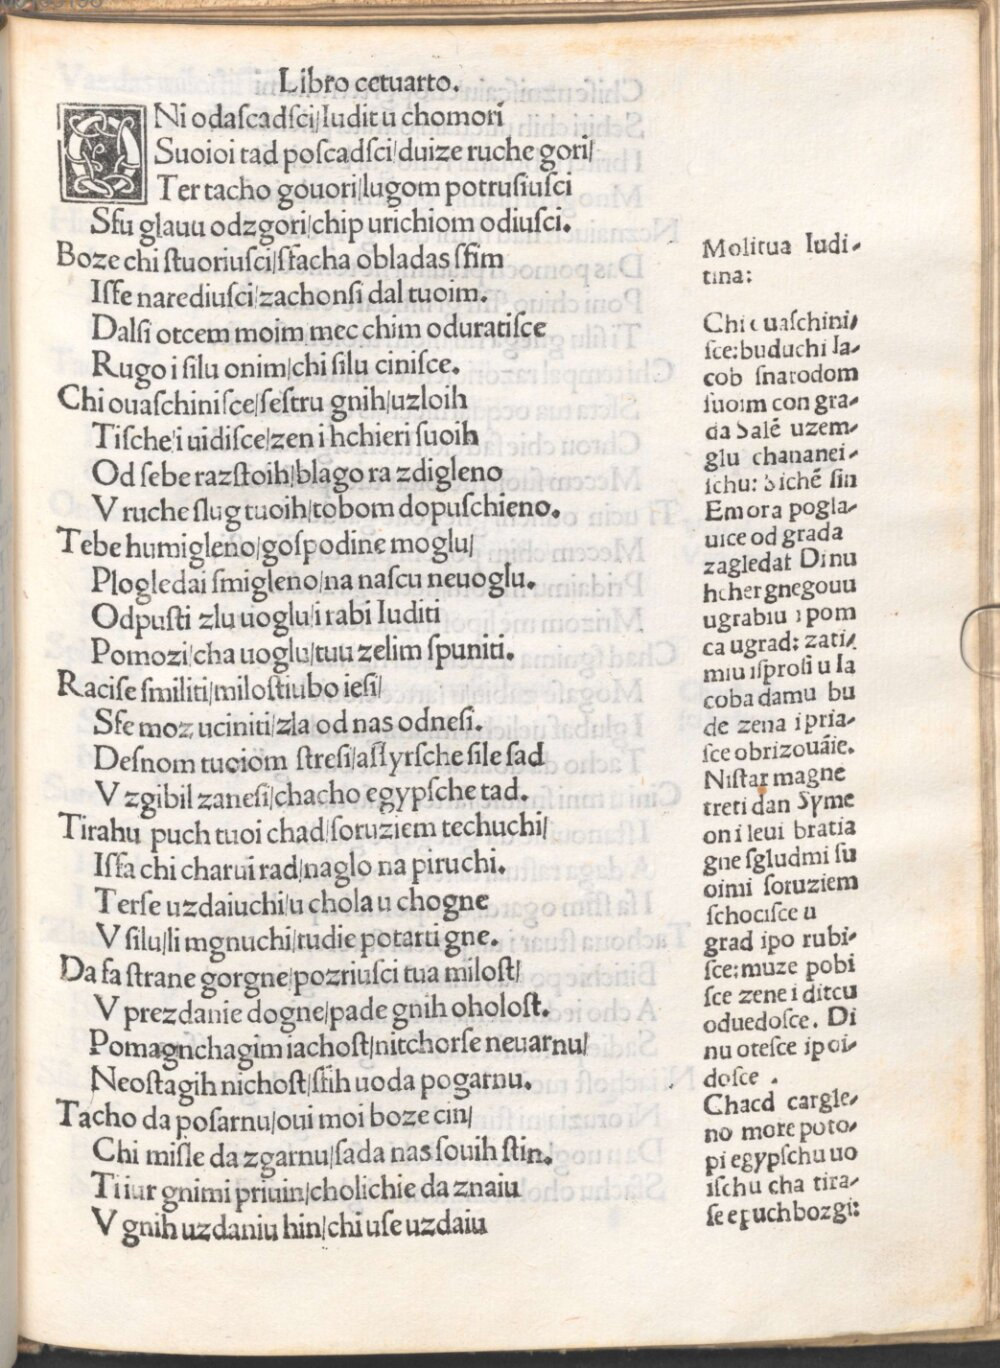 Libro cetuarto.
ONi odaſcadſci/Iudit u chomori
Suoioi tad poſcadſci/duize ruche gori/
Ter tacho gouori/lugom potruſiuſci
Sfu glauu odzgori/chip urichiom odiuſci.
Boze chi ſtuoriuſci/ſfacha obladas ſfim
Iſfe narediuſci/zachonſi dal tuoim.
Dalſi otcem moim mec chim oduratiſce
Rugo i ſilu onim/chi ſilu ciniſce.
Chi ouaſchiniſce/ſeſtru gnih/uzloih
Tiſche/i uidiſce/zen i hchieri ſuoih
Od ſebe razſtoih/blago ra zdigleno
V ruche ſlug tuoih/tobom dopuſchieno.
Tebe humigleno/goſpodine moglu/
Plogledai ſmigleno/na naſcu neuoglu.
Odpuſti zlu uoglu/i rabi Iuditi
Pomozi/cha uoglu/tuu zelim ſpuniti.
Raciſe ſmiliti/miloſtiubo ieſi/
Sfe moz uciniti/zla od nas odneſi.
Deſnom tuoiom ſtreſi/aſſyrſche ſile ſad
V zgibil zaneſi/chacho egypſche tad.
Tirahu puch tuoi chad/ſoruziem techuchi/
Iſfa chi charui rad/naglo na piruchi.
Terſe uzdaiuchi/u chola u chogne
V ſilu/li mgnuchi/tudie potarti gne.
Da ſa ſtrane gorgne/pozriuſci tua miloſt/
V prezdanie dogne/pade gnih oholoſt.
Pomagnchagim iachoſt/nitchorſe neuarnu/
Neoſtagih nichoſt/ſfih uoda pogarnu.
Tacho da poſarnu/oui moi boze cin/
Chi miſle da zgarnu/ſada nas ſouih ſtin.
Ti iur gnimi priuin/cholichie da znaiu
V gnih uzdaniu hin/chi uſe uzdaiu
Molitua Iudi-
tina:
Chi ouaſchini-
ſce: buduchi Ia-
cob ſnarodom
ſuoim con gra-
da Salē uzem-
glu chananei-
ſchu: Sichē ſin
Emora pogla-
uice od grada
zagledat Dinu
hchergnegouu
ugrabiu i pom
ca ugrad: zati-
miu iſproſi u Ia
coba damu bu
de zena i pria-
ſce obrizouāie.
Niſtar magne
treti dan Syme
on i leui bratia
gne ſgludmi ſu
oimi ſoruziem
ſchociſce u
grad ipo rubi-
ſce: muze pobi
ſce zene i ditcu
oduedoſce. Di
nu oteſce ipoi-
doſce .
Chacd cargle-
no more poto-
pi egypſchu uo
iſchu cha tira-
ſe puch bozgi: